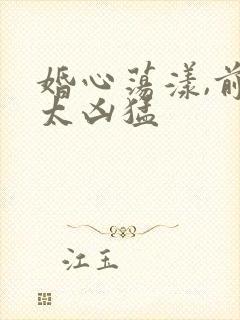 婚心荡漾,前
太凶猛
江玉